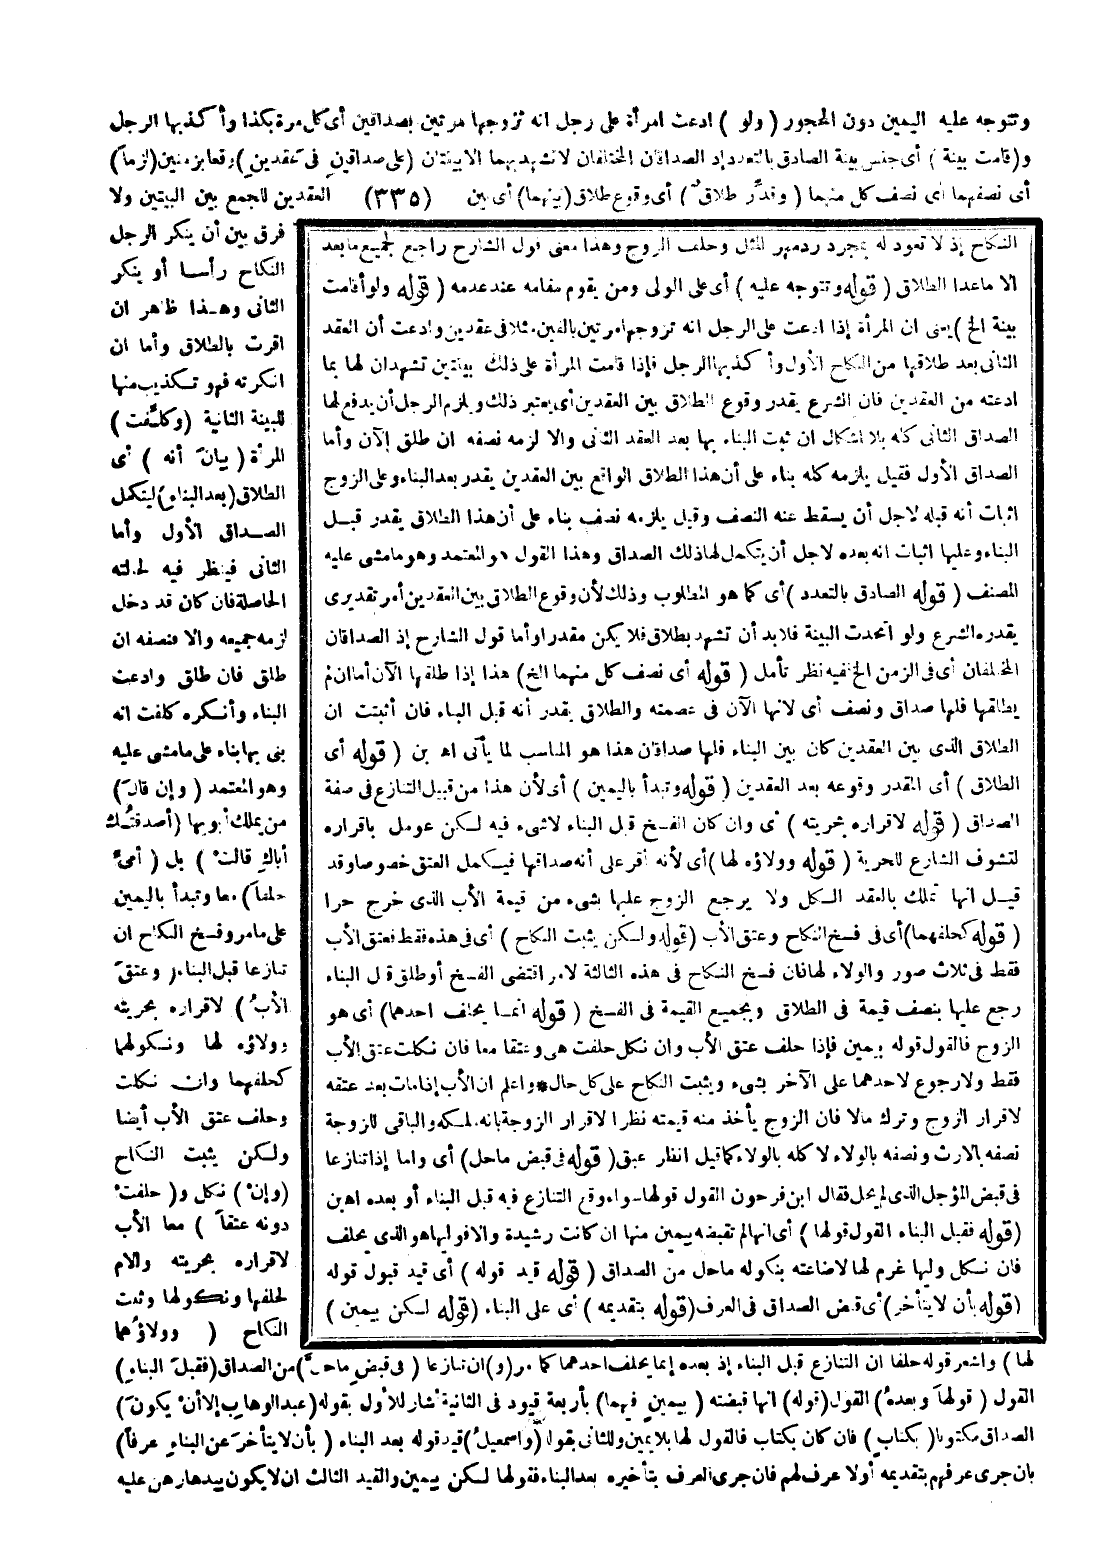 وتتوجه عليه اليمين دون المحجور ( ولو ) ادعت امرأة على رجل انه تزوجها مرتين بصداقين أى كل مرة بكذا وأكذبها الرجل
و(قامت بينة ) أى جنس بينة الصادق بالتعدد إذ الصداقان المختلفان لا تشهد بهما الا بينتان (على صداقين فى عقدين) وقعا بزمنين (لزما)
أى نصفهما أى نصف كل منهما ( وقدر طلاق ) أى وقوع طلاق (بينهما) أى بين (٣٣٥) العقدين للجمع بين البينتين ولا
فرق بين أن ينكر الرجل
النكاح رأسا أو ينكر
الثانى وهذا ظاهر ان
اقرت بالطلاق وأما ان
انكرته فهو تكذيب منها
للبينة الثانية (وكلفت )
المرأة ( بيان أنه ) أى
الطلاق (بعد البناء) ليتكمل
الصداق الأول وأما
الثانى فينظر فيه لحالته
الحاصلة فان كان قد دخل
لزمه جميعه والا فنصفه ان
طلق فان طلق وادعت
البناء وأنكره كلفت انه
بنى بها بناء على ما مشى عليه
وهو المعتمد ( وإن قال )
من يملك أبويها (أصدقتك
أباك قالت ) بل ( أمى
حلفا) معا وتبدأ باليمين
على ما مر وفسخ النكاح ان
تنازعا قبل البناء ( وعتق
الأب ) لاقراره بحريته
وولاؤه لها ونكولهما
كحلفهما وان نكلت
وحلف عتق الأب أيضا
ولكن يثبت النكاح
(وإن ) نكل و( حلفت
دونه عتقا ) معا الأب
لاقراره بحريته والام
لحلفها ونكوله وثبت
النكاح ( وولاؤهما
النكاح إذ لا تعود له بمجرد رد مهر المثل وحلف الزوج وهذا معنى قول الشارح راجع لجميع ما بعد
الا ما عدا الطلاق ( قوله وتتوجه عليه ) أى على الولى ومن يقوم مقامه عند عدمه ( قوله ولو أقامت
بينة الخ ) يعنى ان المرأة إذا ادعت على الرجل انه تزوجها مرتين بالفين مثلا فى عقدين وادعت أن العقد
الثانى بعد طلاقها من النكاح الأول وأكذبها الرجل فإذا قامت المرأة على ذلك بينتين تشهدان لها بما
ادعته من العقدين فان الشرع يقدر وقوع الطلاق بين العقدين أى يعتبر ذلك ويلزم الرجل أن يدفع لها
الصداق الثانى كله بلا اشكال ان ثبت البناء بها بعد العقد الثانى والا لزمه نصفه ان طلق الآن وأما
الصداق الأول فقيل يلزمه كله بناء على أن هذا الطلاق الواقع بين العقدين يقدر بعد البناء وعلى الزوج
اثبات أنه قبله لاجل أن يسقط عنه النصف وقيل يلزمه نصف بناء على أن هذا الطلاق يقدر قبل
البناء وعليها اثبات انه بعده لاجل أن يتكمل لها ذلك الصداق وهذا القول هو المعتمد وهو ما مشى عليه
المصنف ( قوله الصادق بالتعدد ) أى كما هو المطلوب وذلك لأن وقوع الطلاق بين العقدين أمر تقديرى
يقدره الشرع ولو اتحدت البينة فلا بد أن تشهد بطلاق فلا يكن مقدرا وأما قول الشارح إذ الصداقان
المختلفان أى فى الزمن الخ ففيه نظر تأمل ( قوله أى نصف كل منهما الخ) هذا إذا طلقها الآن أما ان لم
يطلقها فلها صداق ونصف أى لانها الآن فى عصمته والطلاق يقدر أنه قبل البناء فان أثبتت ان
الطلاق الذى بين العقدين كان بين البناء فلها صداقان هذا هو المناسب لما يأتى اه بن ( قوله أى
الطلاق ) أى المقدر وقوعه بعد العقدين ( قوله وتبدأ باليمين ) أى لأن هذا من قبيل التنازع فى صفة
الصداق ( قوله لاقراره بحريته ) أى وان كان الفسخ قبل البناء لاشىء فيه لكن عومل باقراره
لتشوف الشارع للحرية ( قوله وولاؤه لها ) أى لأنه أقر على أنه صداقها فيكمل العتق خصوصا وقد
قيل انها تملك بالعقد الكل ولا يرجع الزوج عليها بشىء من قيمة الأب الذى خرج حرا
( قوله كحلفهما) أى فى فسخ النكاح وعتق الأب (قوله ولكن يثبت النكاح ) أى فى هذه فقط فعتق الأب
فقط فى ثلاث صور والولاء لها فان فسخ النكاح فى هذه الثالثة لامر اقتضى الفسخ أو طلق قبل البناء
رجع عليها بنصف قيمة فى الطلاق وبجميع القيمة فى الفسخ ( قوله انما يحلف احدهما) أى هو
الزوج فالقول قوله بيمين فإذا حلف عتق الأب وان نكل حلفت هى وعتقا معا فان نكلت عتق الأب
فقط ولا رجوع لاحدهما على الآخر بشىء ويثبت النكاح على كل حال * واعلم ان الأب إذا مات بعد عتقه
لاقرار الزوج وترك مالا فان الزوج يأخذ منه قيمته نظرا لاقرار الزوجة بانه لملكه والباقى للزوجة
نصفه بالارث ونصفه بالولاء لا كله بالولاء كما قيل انظر عبق ( قوله فى قبض ما حل) أى واما إذا تنازعا
فى قبض المؤجل الذى لم يحل فقال ابن فرحون القول قولها سواء وقع التنازع فيه قبل البناء أو بعده اه بن
(قوله فقبل البناء القول قولها ) أى انها لم تقبضه بيمين منها ان كانت رشيدة والا فوليها هو الذى يحلف
فان نكل وليها غرم لها لاضاعته بنكوله ما حل من الصداق ( قوله قيد قوله ) أى قيد قبول قوله
(قوله بأن لا يتأخر) أى قبض الصداق فى العرف (قوله بتقديمه ) أى على البناء (قوله لكن بيمين )
لها ) واشعر قوله حلفا ان التنازع قبل البناء إذ بعده إنما يحلف احدهما كما مر (و) ان تنازعا ( فى قبض ما حل ) من الصداق (فقبل البناء )
القول ( قولها وبعده ) القول (قوله) انها قبضته ( بيمين فيهما) بأربعة قيود فى الثانية أشار للأول بقوله (عبد الوهاب إلا أن يكون )
الصداق مكتوبا ( بكتاب ) فان كان بكتاب فالقول لها بلا يمين وللثانى بقوله (واسمعيل) قيد قوله بعد البناء ( بأن لا يتأخر عن البناء عرفا)
بان جرى عرفهم بتقديمه أو لا عرف لهم فان جرى العرف بتأخيره بعد البناء فقولها لكن بيمين والقيد الثالث ان لا يكون بيدها رهن عليه